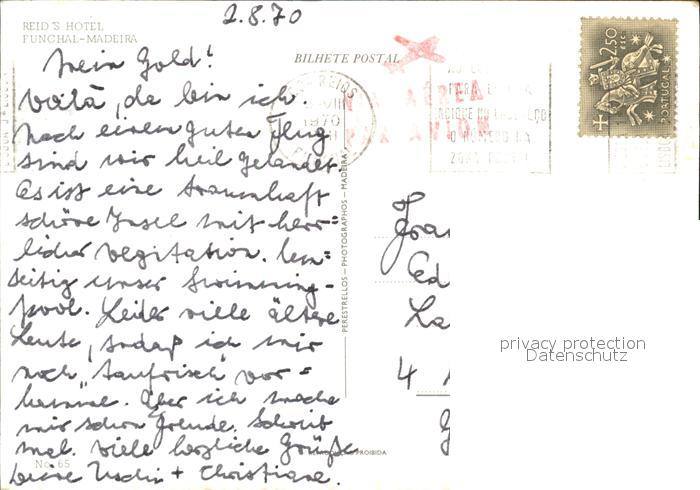 2.8.70
REID'S HOTEL
FUNCHAL-MADEIRA
BILHETE POSTAL
Mein Gold!
Voilà, da bin ich.
Nach einem guten Flug
sind wir heil gelandet.
Es ist eine traumhaft
schöne Insel mit herr=
licher Vegitation. Um=
seitig unser Swimming-
pool. Leider viele ältere
Leute, sodaß ich mir
noch "taufrisch" vor=
komme. Aber ich mache
mir schon Freunde. Schreib
mal. Viele herzliche Grüße
Deine Uschi + Christiane.
No. 65
PERESTRELLOS - PHOTOGRAPHOS - MADEIRA
PROIBIDA
VIII
1970
AÉREA
PAR AVION
O NÚMERO DA
2$50
PORTUGAL
Ed
La
4
privacy protection
Datenschutz